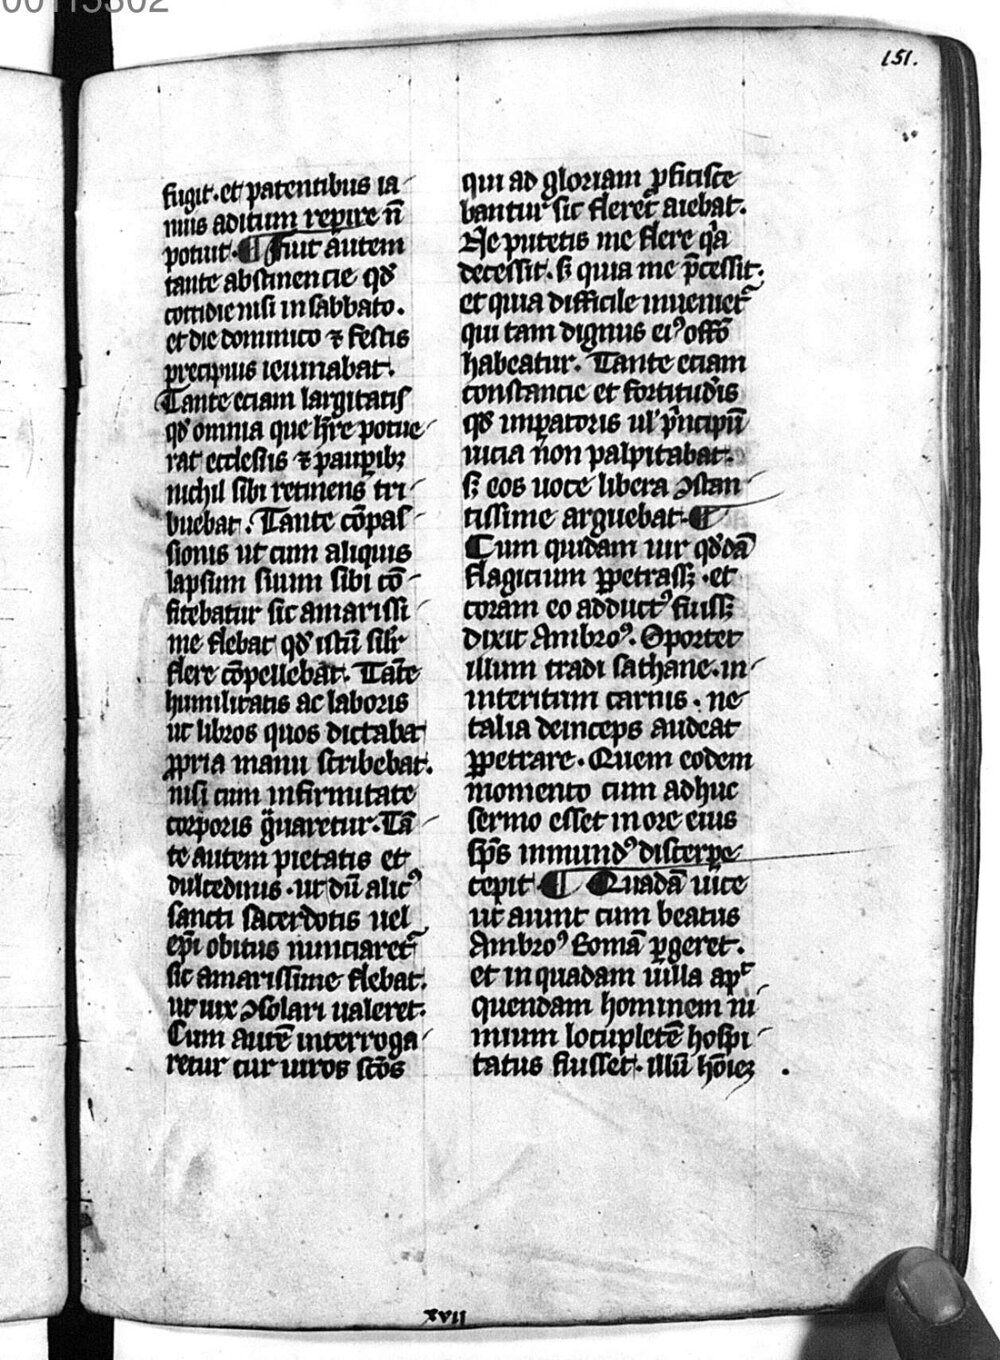 00113302
151.
fugit. et patentibus ia
nuis aditum repire n̄
potuit. ¶ Fuit autem
tante abstinencie qđ
cottidie nisi in sabbato.
et die dominico ⁊ festis
precipuis ieiunabat.
Tante eciam largitatis
qđ omnia que hr̄e potue
rat ecclesiis ⁊ paupibꝫ
nichil sibi retinens tri
buebat. Tante cōpas
sionis ut cum aliquis
lapsum suum sibi cō
fitebatur sic amarissi
me flebat qđ istū silr̄
flere cōpellebat. Tāte
humilitatis ac laboris
ut libros quos dictabat
ꝓpria manu scribebat.
nisi cum infirmitate
corporis gͣuaretur. Tā
te autem pietatis et
dulcedinis. ut dū alicꝰ
sancti sacerdotis uel
epī obitus nunciaretᷣ
sic amarissime flebat.
ut uix ꝯsolari ualeret.
Cum autē interroga
retur cur uiros sc̄os
qui ad gloriam ꝓficisce
bantur sic fleret aiebat.
Ne putetis me flere qͥa
decessit. sꝫ quia me p̄cessit.
et quia difficile inuenietᷣ
qui tam dignus eiꝰ offō
habeatur. Tante eciam
constancie et fortitudīs
qđ impatoris ul' pͥncipū
uicia non palpitabat.
sꝫ eos uoce libera ꝯstan
tissime arguebat. ¶
Cum quidam uir qđdā
flagicium ꝑpetrassꝫ. et
coram eo adductꝰ fuissꝫ
dixit Ambroꝰ. Oportet
illum tradi sathane. in
interitum carnis. ne
talia deinceps audeat
ꝑpetrare. Quem eodem
momento cum adhuc
sermo esset in ore eius
sp̄s inmundꝰ discerpe
cepit ¶ Quadā uice
ut aiunt cum beatus
Ambroꝰ Romā ꝑgeret.
et in quadam uilla apᵗ
quendam hominem ni
mium locupletē hospi
tatus fuisset. illū hōiēꝫ
xvii